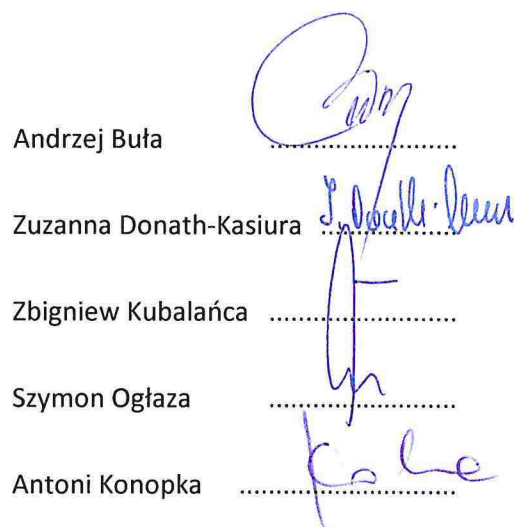 Andrzej Buła ........................
Zuzanna Donath-Kasiura ........................
Zbigniew Kubalańca ........................
Szymon Ogłaza ........................
Antoni Konopka ........................